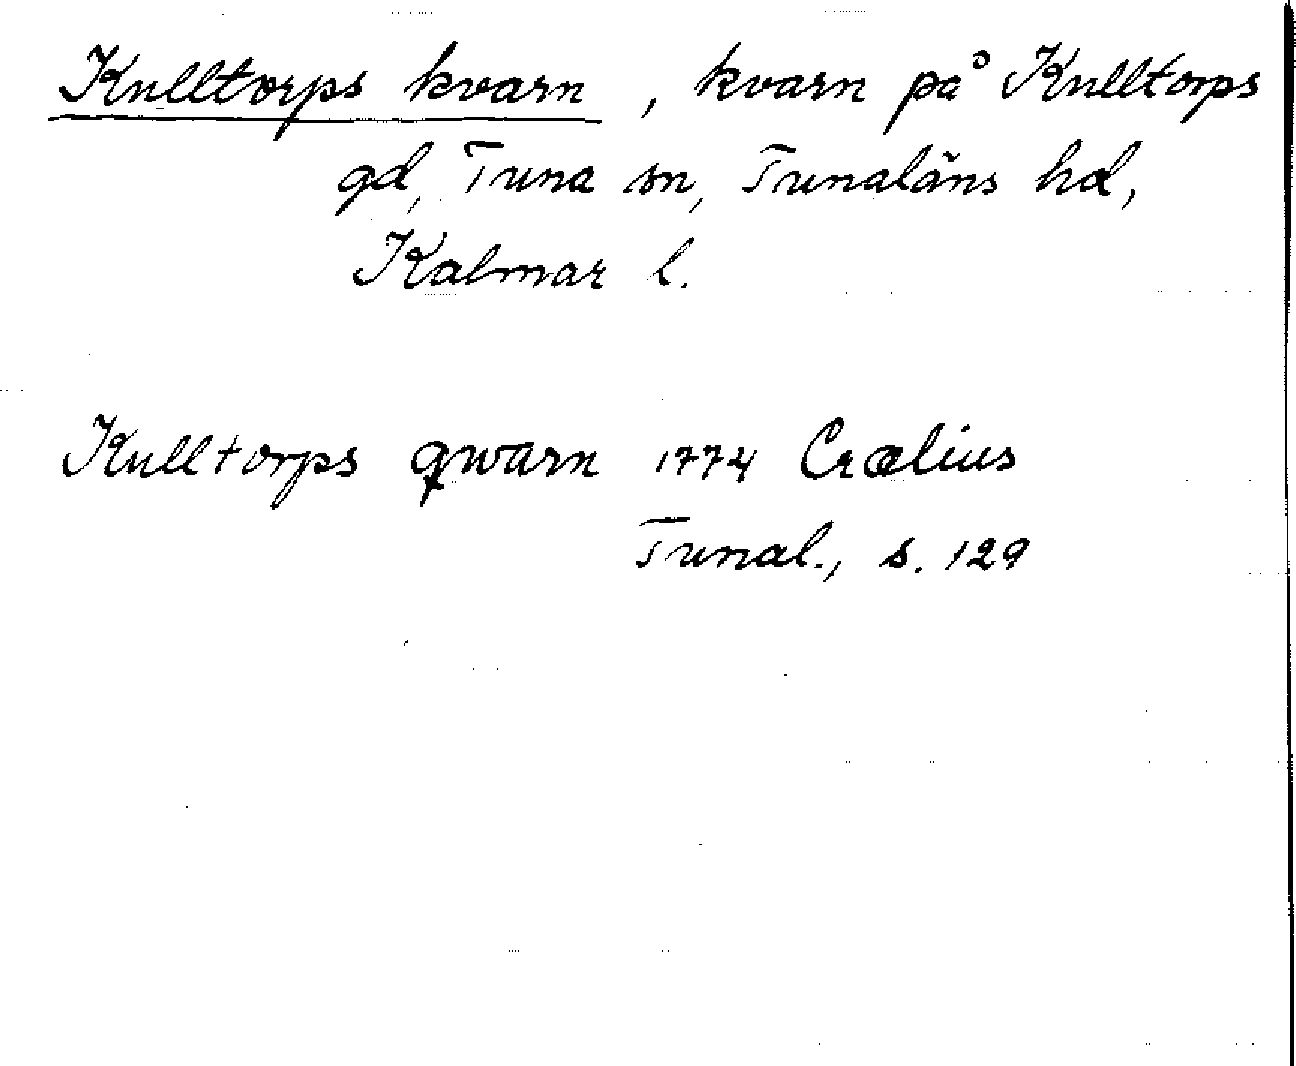 Kulltorps kvarn, kvarn på Kulltorps
gd, Tuna sn, Tunaläns hd,
Kalmar l.
Kulltorps qwarn 1774 Crælius
Tunal., s. 129